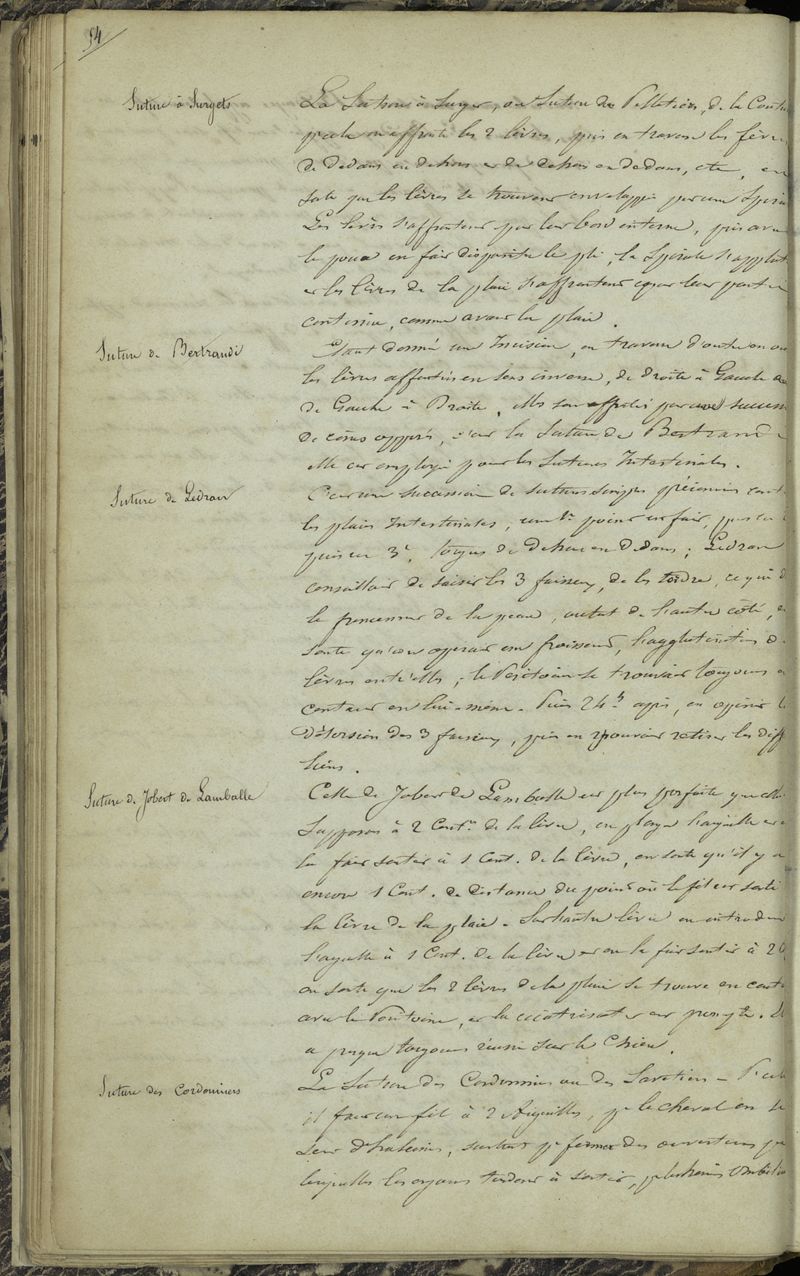 54
Suture à Surgets
La Suture à Surget, ou Suture du Pelletier, de la Cout
on affronte les 2 lèvres, puis on traverse les lèvres
de dedans en dehors et de dehors en dedans, etc, en
sorte que les lèvres se trouvent enveloppées par une Spira
Les lèvres s'affrontent par leur bord interne, puis avec
le pouce on fait disparaitre le pli, la Spirale s'applatit
et les lèvres de la plaie s'affrontent par leur
continue, comme avant la plaie.
Suture de Bertrandi
Etant donné une Incision, on traverse d'outre en ou
les lèvres affrontées en sens inverse, de droite à Gauche
de Gauche à Droite, elles sont affrontées par une succes
de opposés, c'est la Suture de Bertrandi
elle est employée pour les Sutures Intestinales.
Suture de Ledran
C'est une succession de sutures simples
les plaies Intestinales, un 1er point est fait, puis un 2
puis un 3e, toujours de dehors en dedans; Ledran
conseillait de saisir les 3 faisceaux, de les tordre, ce qui
le froncement de la peau, autant de l'autre côté, en
sorte qu'on opérait un froissement, l'agglutination des
lèvres entr'elles; le Péritoine se trouvait toujours en
contact en lui-même. Puis 24h après, on opérait la
détorsion des 3 faisceaux, puis on pouvait retirer les diff
liens.
Suture de Jobert de Lamballe
Celle de Jobert de Lamballe est plus parfaite que celle
Supposons à 2 Cent. de la lèvre, on plonge l'aiguille et
la fait sortir à 1 Cent. de la lèvre, en sorte qu'il y a
encore 1 Cent. de distance du point où le fil est sorti
la lèvre de la plaie. Sur l'autre lèvre on introduit
l'aiguille à 1 Cent. de la lèvre et on la fait sortir à 2 C
en sorte que les 2 lèvres de la plaie se trouve en cont
avec le Péritoine, et la cicatrisation est prompte.
a presque toujours réussi sur le Chien.
Suture des Cordonniers
La Suture des Cordonniers ou des Savetiers
il faut un fil à 2 Aiguilles, pr le cheval on se
sert d'halènes, surtout pr fermer des ouvertures
lesquelles les organes tendent à sortir, pr les hernies Ombilic